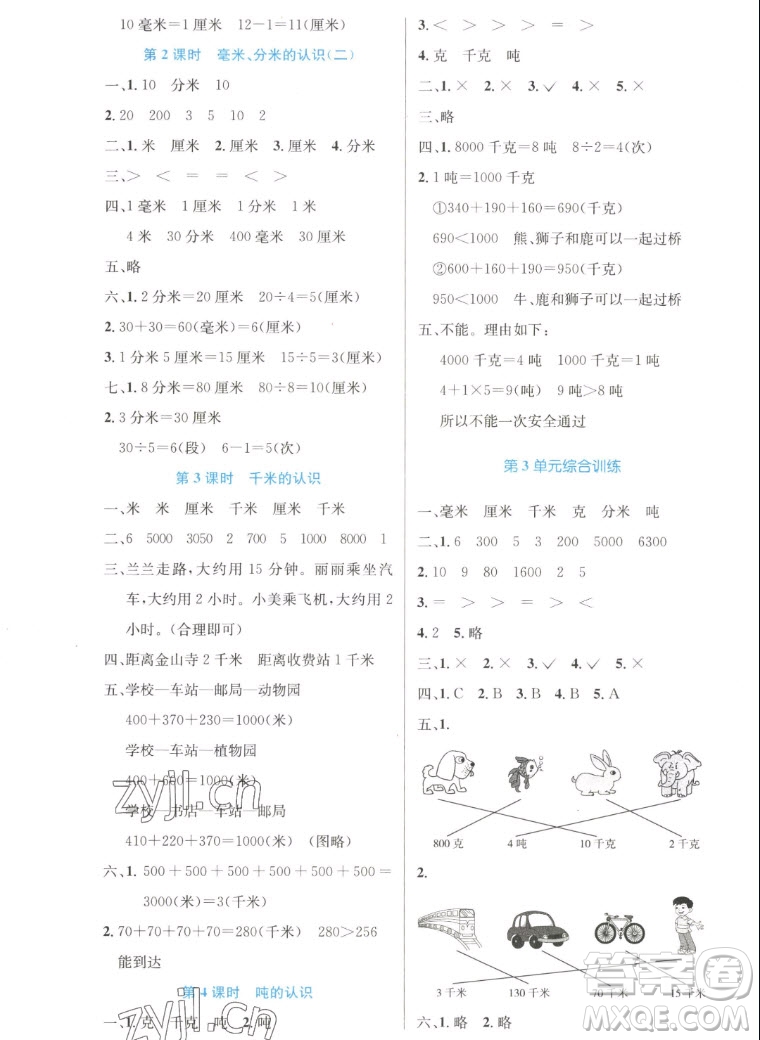 10 毫米=1 厘米　12-1=11(厘米)
第 2 课时　毫米、分米的认识(二)
一、1. 10　分米　10
2. 20　200　3　5　10　2
二、1. 米　厘米　2. 厘米　3. 厘米　4. 分米
三、>　<　=　=　<　>
四、1 毫米　1 厘米　1 分米　1 米
4 米　30 分米　400 毫米　30 厘米
五、略
六、1. 2 分米=20 厘米　20÷4=5(厘米)
2. 30+30=60(毫米)=6(厘米)
3. 1 分米 5 厘米=15 厘米　15÷5=3(厘米)
七、1. 8 分米=80 厘米　80÷8=10(厘米)
2. 3 分米=30 厘米
30÷5=6(段)　6-1=5(次)
第 3 课时　千米的认识
一、米　米　厘米　千米　厘米　千米
二、6　5000　3050　2　700　5　1000　8000　1
三、兰兰走路,大约用 15 分钟。丽丽乘坐汽
车,大约用 2 小时。小美乘飞机,大约用 2
小时。(合理即可)
四、距离金山寺 2 千米　距离收费站 1 千米
五、学校—车站—邮局—动物园
400+370+230=1000(米)
学校—车站—植物园
400+600=1000(米)
学校—书店—车站—邮局
410+220+370=1000(米)　(图略)
六、1. 500+500+500+500+500+500=
3000(米)=3(千米)
2. 70+70+70+70=280(千米)　280>256
能到达
第 4 课时　吨的认识
一、1. 克　千克　吨　2. 吨
3. <　>　>　>　=　>
4. 克　千克　吨
二、1. ×　2. ×　3. ✓　4. ×　5. ×
三、略
四、1. 8000 千克=8 吨　8÷2=4(次)
2. 1 吨=1000 千克
①340+190+160=690(千克)
690<1000　熊、狮子和鹿可以一起过桥
②600+160+190=950(千克)
950<1000　牛、鹿和狮子可以一起过桥
五、不能。理由如下:
4000 千克=4 吨　1000 千克=1 吨
4+1×5=9(吨)　9 吨>8 吨
所以不能一次安全通过
第 3 单元综合训练
一、毫米　厘米　千米　克　分米　吨
二、1. 6　300　5　3　5000　6300
2. 10　9　80　1600　2　20
3. =　>　>　=　>　<
4. 2　5. 略
三、1. ×　2. ×　3. ✓　4. ✓　5. ×
四、1. C　2. B　3. B　4. B　5. A
五、1.
800 克　4 吨　10 千克　2 千克
2.
3 千米　130 千米　70 千米　15 千米
六、1. 略　2. 略
zyjl.cn
zyjl.cn
答案圈